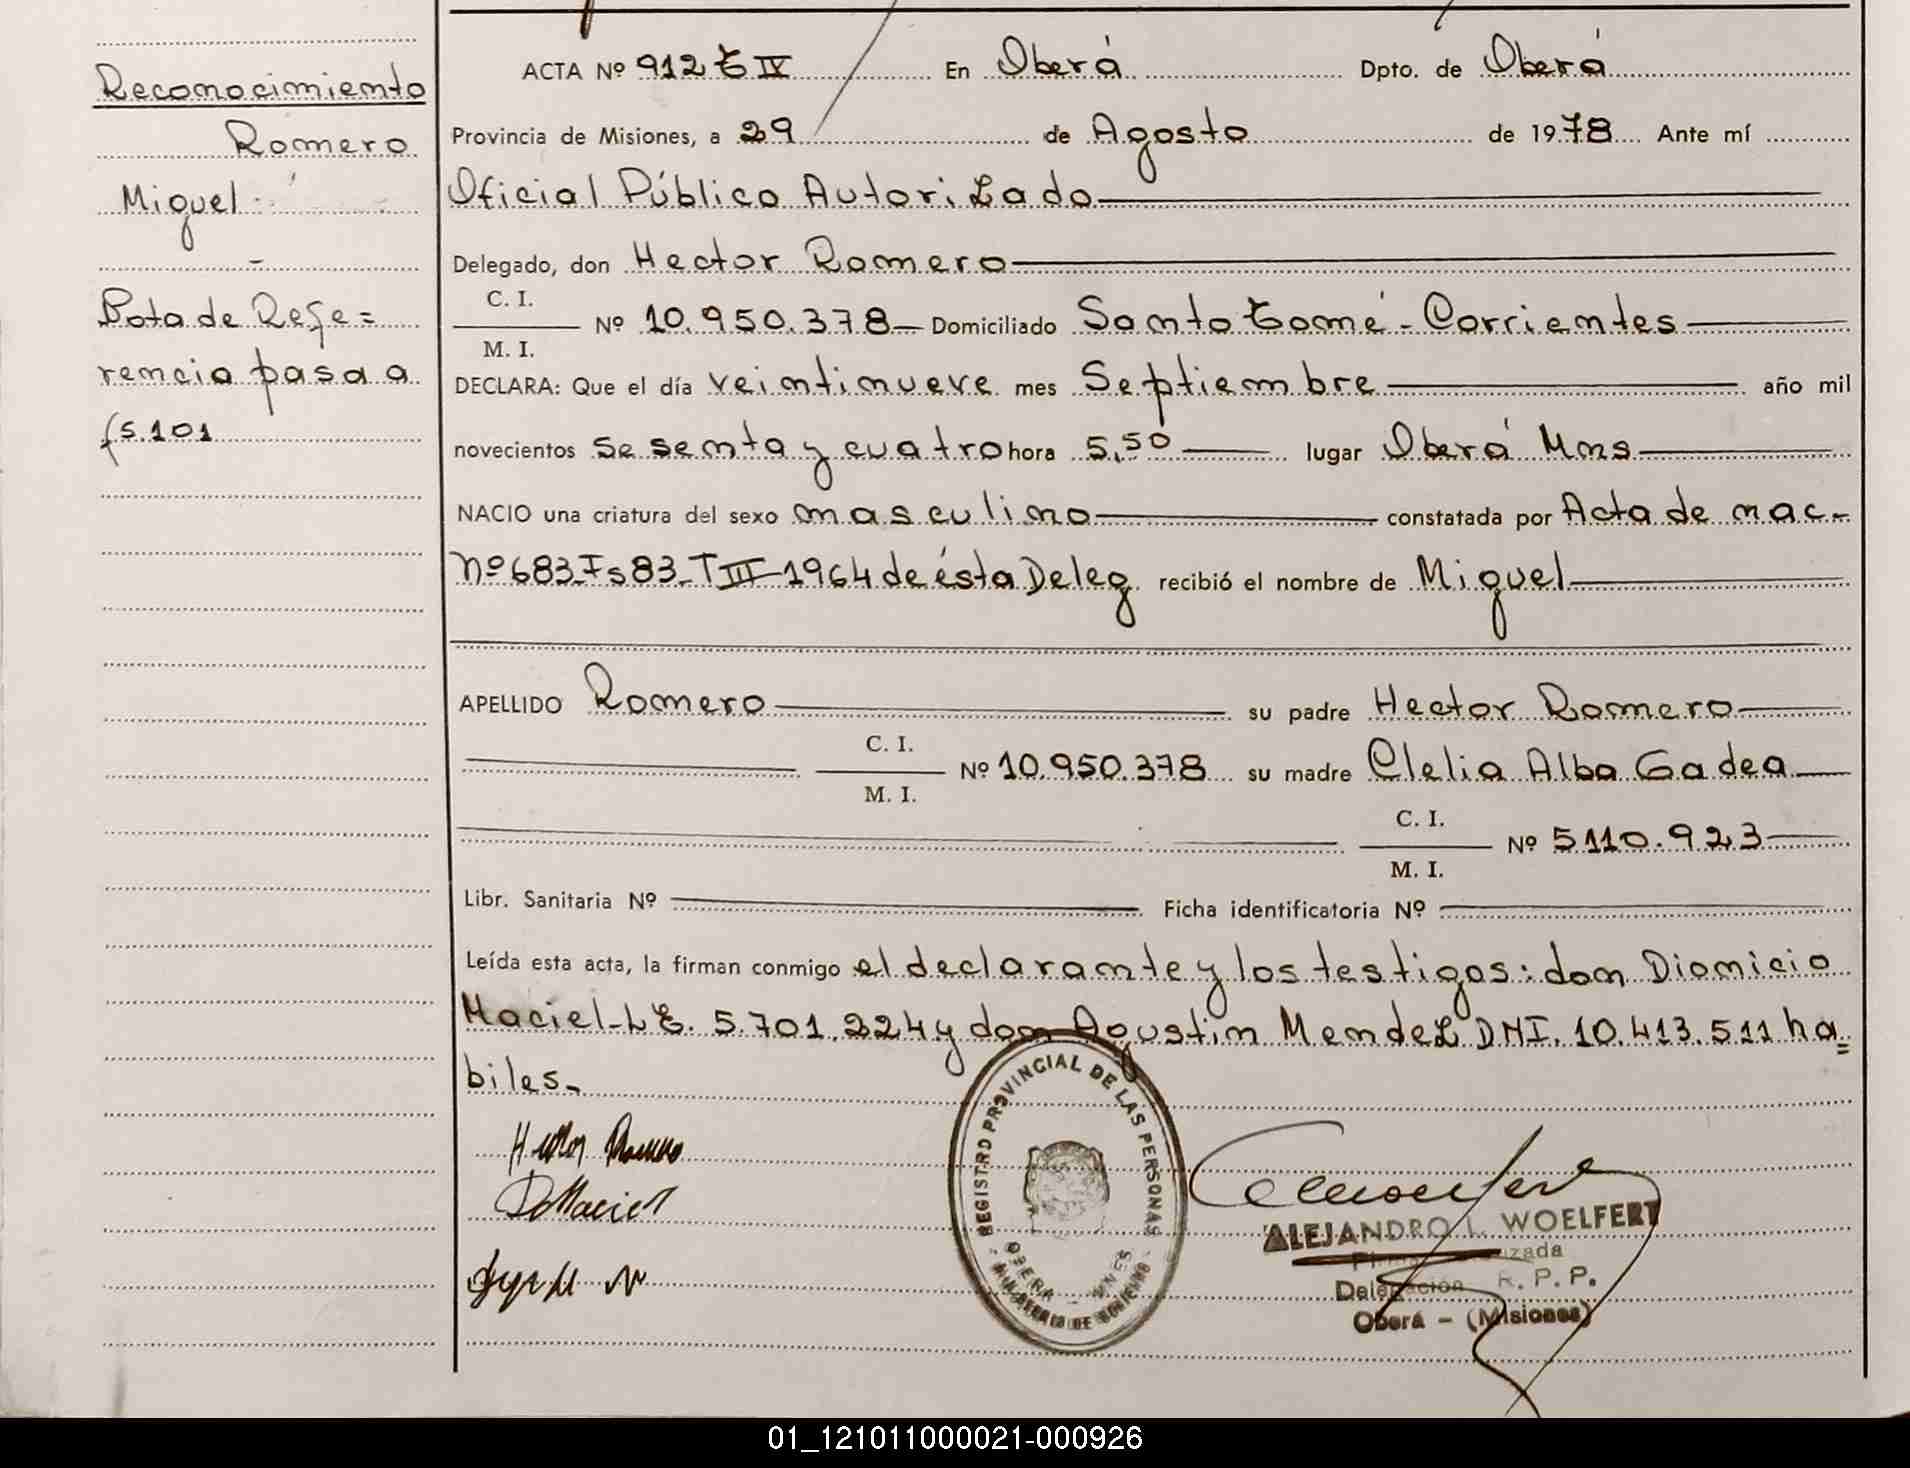 Reconocimiento
Romero
Miguel
Nota de Refe=
rencia pasa a
fs.101
ACTA Nº 912 T IV En Oberá Dpto. de Oberá
Provincia de Misiones, a 29 de Agosto de 1978 Ante mí
Oficial Público Autorizado
Delegado, don Hector Romero
C. I.
M. I.
Nº 10.950.378 Domiciliado Santo Tomé - Corrientes
DECLARA: Que el día veintinueve mes Septiembre año mil
novecientos sesenta y cuatro hora 5,50 lugar Oberá Mns
NACIO una criatura del sexo masculino constatada por Acta de nac-
Nº 683-Fs 83-T III-1964 de ésta Deleg. recibió el nombre de Miguel
APELLIDO Romero su padre Hector Romero
C. I.
M. I.
Nº 10.950.378 su madre Clelia Alba Gadea
C. I.
M. I.
Nº 5110.923
Libr. Sanitaria Nº Ficha identificatoria Nº
Leída esta acta, la firman conmigo el declarante y los testigos: don Dionicio
Maciel-L.E. 5.701.224 y don Agustin Mendez DNI. 10.413.511 ha=
biles-
Hector Romero
D Maciel
REGISTRO PROVINCIAL DE LAS PERSONAS
OBERA - MNES
MINISTERIO DE GOBIERNO
ALEJANDRO L. WOELFERT
Delegación R. P. P.
Oberá - (Misiones)
01_121011000021-000926